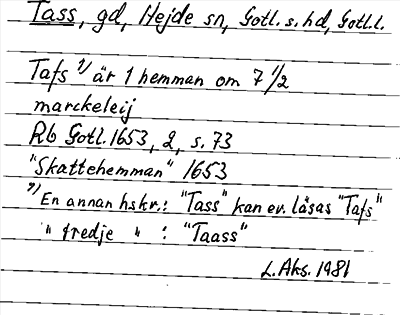 Tass, gd, Hejde sn, Gotl. s. hd, Gotl.l.
Tafs 1) är 1 hemman om 7 1/2
marckeleij
Rb Gotl. 1653, 2, s. 73
"Skattehemman" 1653
1) En annan hskr.: "Tass" kan ev. läsas "Tafs"
" tredje " : "Taass"
L. Aks. 1981